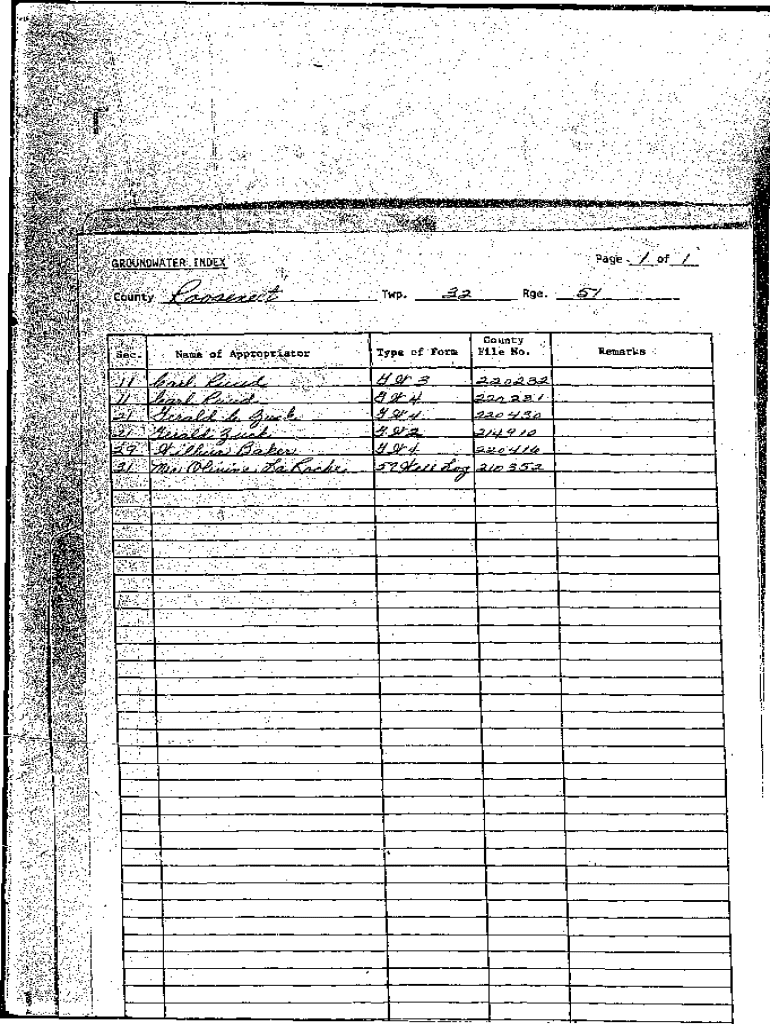 GROUNDWATER INDEX
Page 1 of 1
County Roosevelt Twp. 32 Rge. 51
Sec. Name of Appropriator Type of Form County File No. Remarks
11 Carl G W 3 220232
11 Carl G W 4 220231
21 Gerald C Zuck G W 4 220430
21 Gerald Zuck G W 2 214910
29 Wilbur Baker G W 4 220416
31 Mrs La Roche Well Log 210352